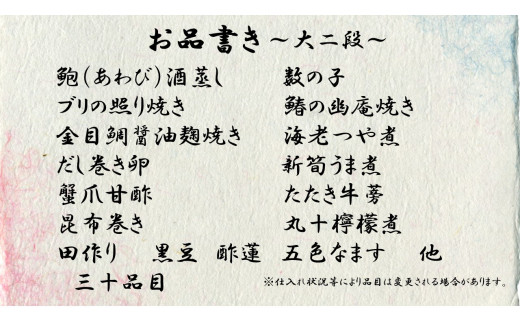 お品書き～大二段～
鮑(あわび)酒蒸し　数の子
ブリの照り焼き　鰆の幽庵焼き
金目鯛醤油麹焼き　海老つや煮
だし巻き卵　新筍うま煮
蟹爪甘酢　たたき牛蒡
昆布巻き　丸十檸檬煮
田作り　黒豆　酢蓮　五色なます　他
三十品目
※仕入れ状況等により品目は変更される場合があります。